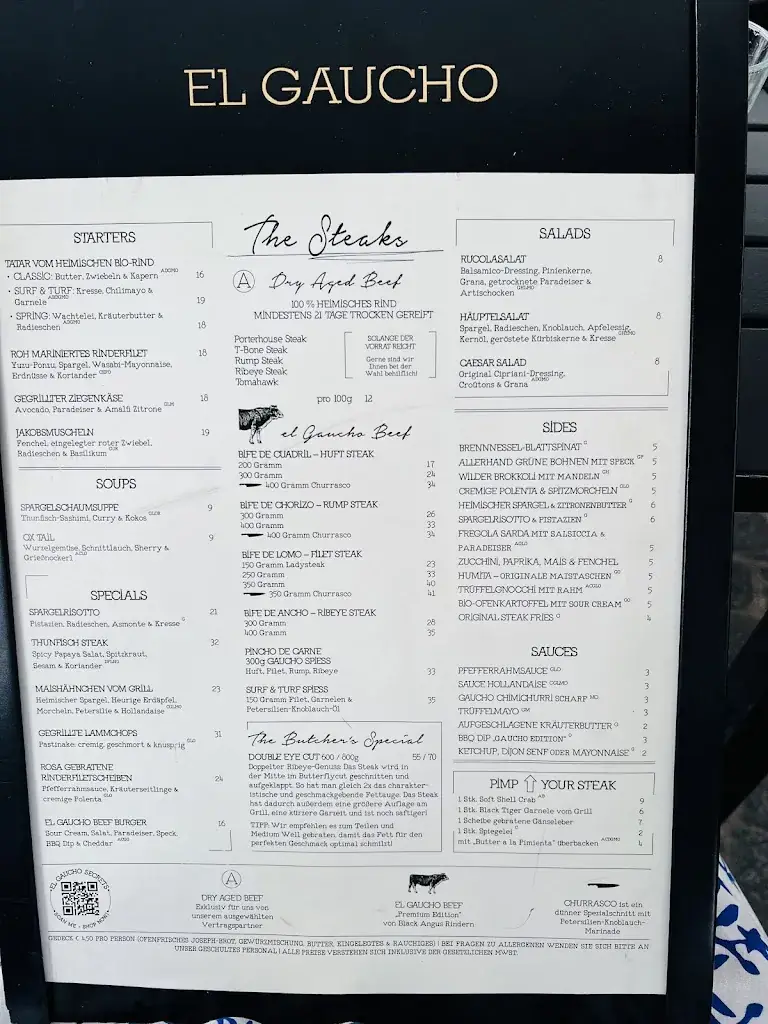 EL GAUCHO
STARTERS
TATAR VOM HEIMISCHEN BIO-RIND
• CLASSIC: Butter, Zwiebeln & Kapern 16
• SURF & TURF: Kresse, Chilimayo &
Garnele 19
• SPRING: Wachtelei, Kräuterbutter &
Radieschen 18
ROH MARINIERTES RINDERFILET 18
Yuzu-Ponzu, Spargel, Wasabi-Mayonnaise,
Erdnüsse & Koriander
GEGRILLTER ZIEGENKÄSE 18
Avocado, Paradeiser & Amalfi Zitrone
JAKOBSMUSCHELN 19
Fenchel, eingelegter roter Zwiebel,
Radieschen & Basilikum
SOUPS
SPARGELSCHAUMSUPPE 9
Thunfisch-Sashimi, Curry & Kokos
OX TAIL 9
Wurzelgemüse, Schnittlauch, Sherry &
Grießnockerl
SPECIALS
SPARGELRISOTTO 21
Pistazien, Radieschen, Asmonte & Kresse G
THUNFISCH STEAK 32
Spicy Papaya Salat, Spitzkraut,
Sesam & Koriander
MAISHÄHNCHEN VOM GRILL 23
Heimischer Spargel, Heurige Erdäpfel,
Morcheln, Petersilie & Hollandaise
GEGRILLTE LAMMCHOPS 31
Pastinake: cremig, geschmort & knusprig GLO
ROSA GEBRATENE
RINDERFILETSCHEIBEN 24
Pfefferrahmsauce, Kräuterseitlinge &
cremige Polenta GLO
EL GAUCHO BEEF BURGER 16
Sour Cream, Salat, Paradeiser, Speck,
BBQ Dip & Cheddar
The Steaks
A Dry Aged Beef
100 % HEIMISCHES RIND
MINDESTENS 21 TAGE TROCKEN GEREIFT
Porterhouse Steak
T-Bone Steak
Rump Steak
Ribeye Steak
Tomahawk
SOLANGE DER
VORRAT REICHT
Gerne sind wir
Ihnen bei der
Wahl behilflich!
pro 100g 12
el Gaucho Beef
BIFE DE CUADRIL – HUFT STEAK
200 Gramm 17
300 Gramm 24
400 Gramm Churrasco 34
BIFE DE CHORIZO – RUMP STEAK
300 Gramm 26
400 Gramm 33
400 Gramm Churrasco 34
BIFE DE LOMO – FILET STEAK
150 Gramm Ladysteak 23
250 Gramm 33
350 Gramm 40
350 Gramm Churrasco 41
BIFE DE ANCHO – RIBEYE STEAK
300 Gramm 28
400 Gramm 35
PINCHO DE CARNE
300g GAUCHO SPIESS
Huft, Filet, Rump, Ribeye 33
SURF & TURF SPIESS
150 Gramm Filet, Garnelen & 35
Petersilien-Knoblauch-Öl
The Butcher's Special
DOUBLE EYE CUT 600 / 800g 55 / 70
Doppelter Ribeye-Genuss: Das Steak wird in
der Mitte im Butterflycut geschnitten und
aufgeklappt. So hat man gleich 2x das charakter-
istische und geschmackgebende Fettauge. Das Steak
hat dadurch außerdem eine größere Auflage am
Grill, eine kürzere Garzeit und ist noch saftiger!
TIPP: Wir empfehlen es zum Teilen und
Medium Well gebraten, damit das Fett für den
perfekten Geschmack optimal schmilzt!
SALADS
RUCOLASALAT 8
Balsamico-Dressing, Pinienkerne,
Grana, getrocknete Paradeiser &
Artischocken
HÄUPTELSALAT 8
Spargel, Radieschen, Knoblauch, Apfelessig,
Kernöl, geröstete Kürbiskerne & Kresse
CAESAR SALAD 8
Original Cipriani-Dressing,
Croûtons & Grana
SIDES
BRENNNESSEL-BLATTSPINAT G 5
ALLERHAND GRÜNE BOHNEN MIT SPECK 5
WILDER BROKKOLI MIT MANDELN 5
CREMIGE POLENTA & SPITZMORCHELN GLO 5
HEIMISCHER SPARGEL & ZITRONENBUTTER G 6
SPARGELRISOTTO & PISTAZIEN G 6
FREGOLA SARDA MIT SALSICCIA &
PARADEISER 5
ZUCCHINI, PAPRIKA, MAIS & FENCHEL 5
HUMITA – ORIGINALE MAISTASCHEN 5
TRÜFFELGNOCCHI MIT RAHM 5
BIO-OFENKARTOFFEL MIT SOUR CREAM 5
ORIGINAL STEAK FRIES 4
SAUCES
PFEFFERRAHMSAUCE GLO 3
SAUCE HOLLANDAISE CGLMO 3
GAUCHO CHIMICHURRI SCHARF MO 3
TRÜFFELMAYO CM 3
AUFGESCHLAGENE KRÄUTERBUTTER G 2
BBQ DIP „GAUCHO EDITION“ 3
KETCHUP, DIJON SENF ODER MAYONNAISE 2
PIMP YOUR STEAK
1 Stk. Soft Shell Crab AB 9
1 Stk. Black Tiger Garnele vom Grill 6
1 Scheibe gebratene Gänseleber 7
1 Stk. Spiegelei 2
mit „Butter a la Pimienta“ überbacken 4
EL GAUCHO SECRETS
SCAN ME • SHOP NOW!
A
DRY AGED BEEF
Exklusiv für uns von
unserem ausgewählten
Vertragspartner
EL GAUCHO BEEF
„Premium Edition“
von Black Angus Rindern
CHURRASCO ist ein
dünner Spezialschnitt mit
Petersilien-Knoblauch-
Marinade
GEDECK € 4,50 PRO PERSON (OFENFRISCHES JOSEPH-BROT, GEWÜRZMISCHUNG, BUTTER, EINGELEGTES & RAUCHIGES) | BEI FRAGEN ZU ALLERGENEN WENDEN SIE SICH BITTE AN
UNSER GESCHULTES PERSONAL | ALLE PREISE VERSTEHEN SICH INKLUSIVE DER GESETZLICHEN MWST.